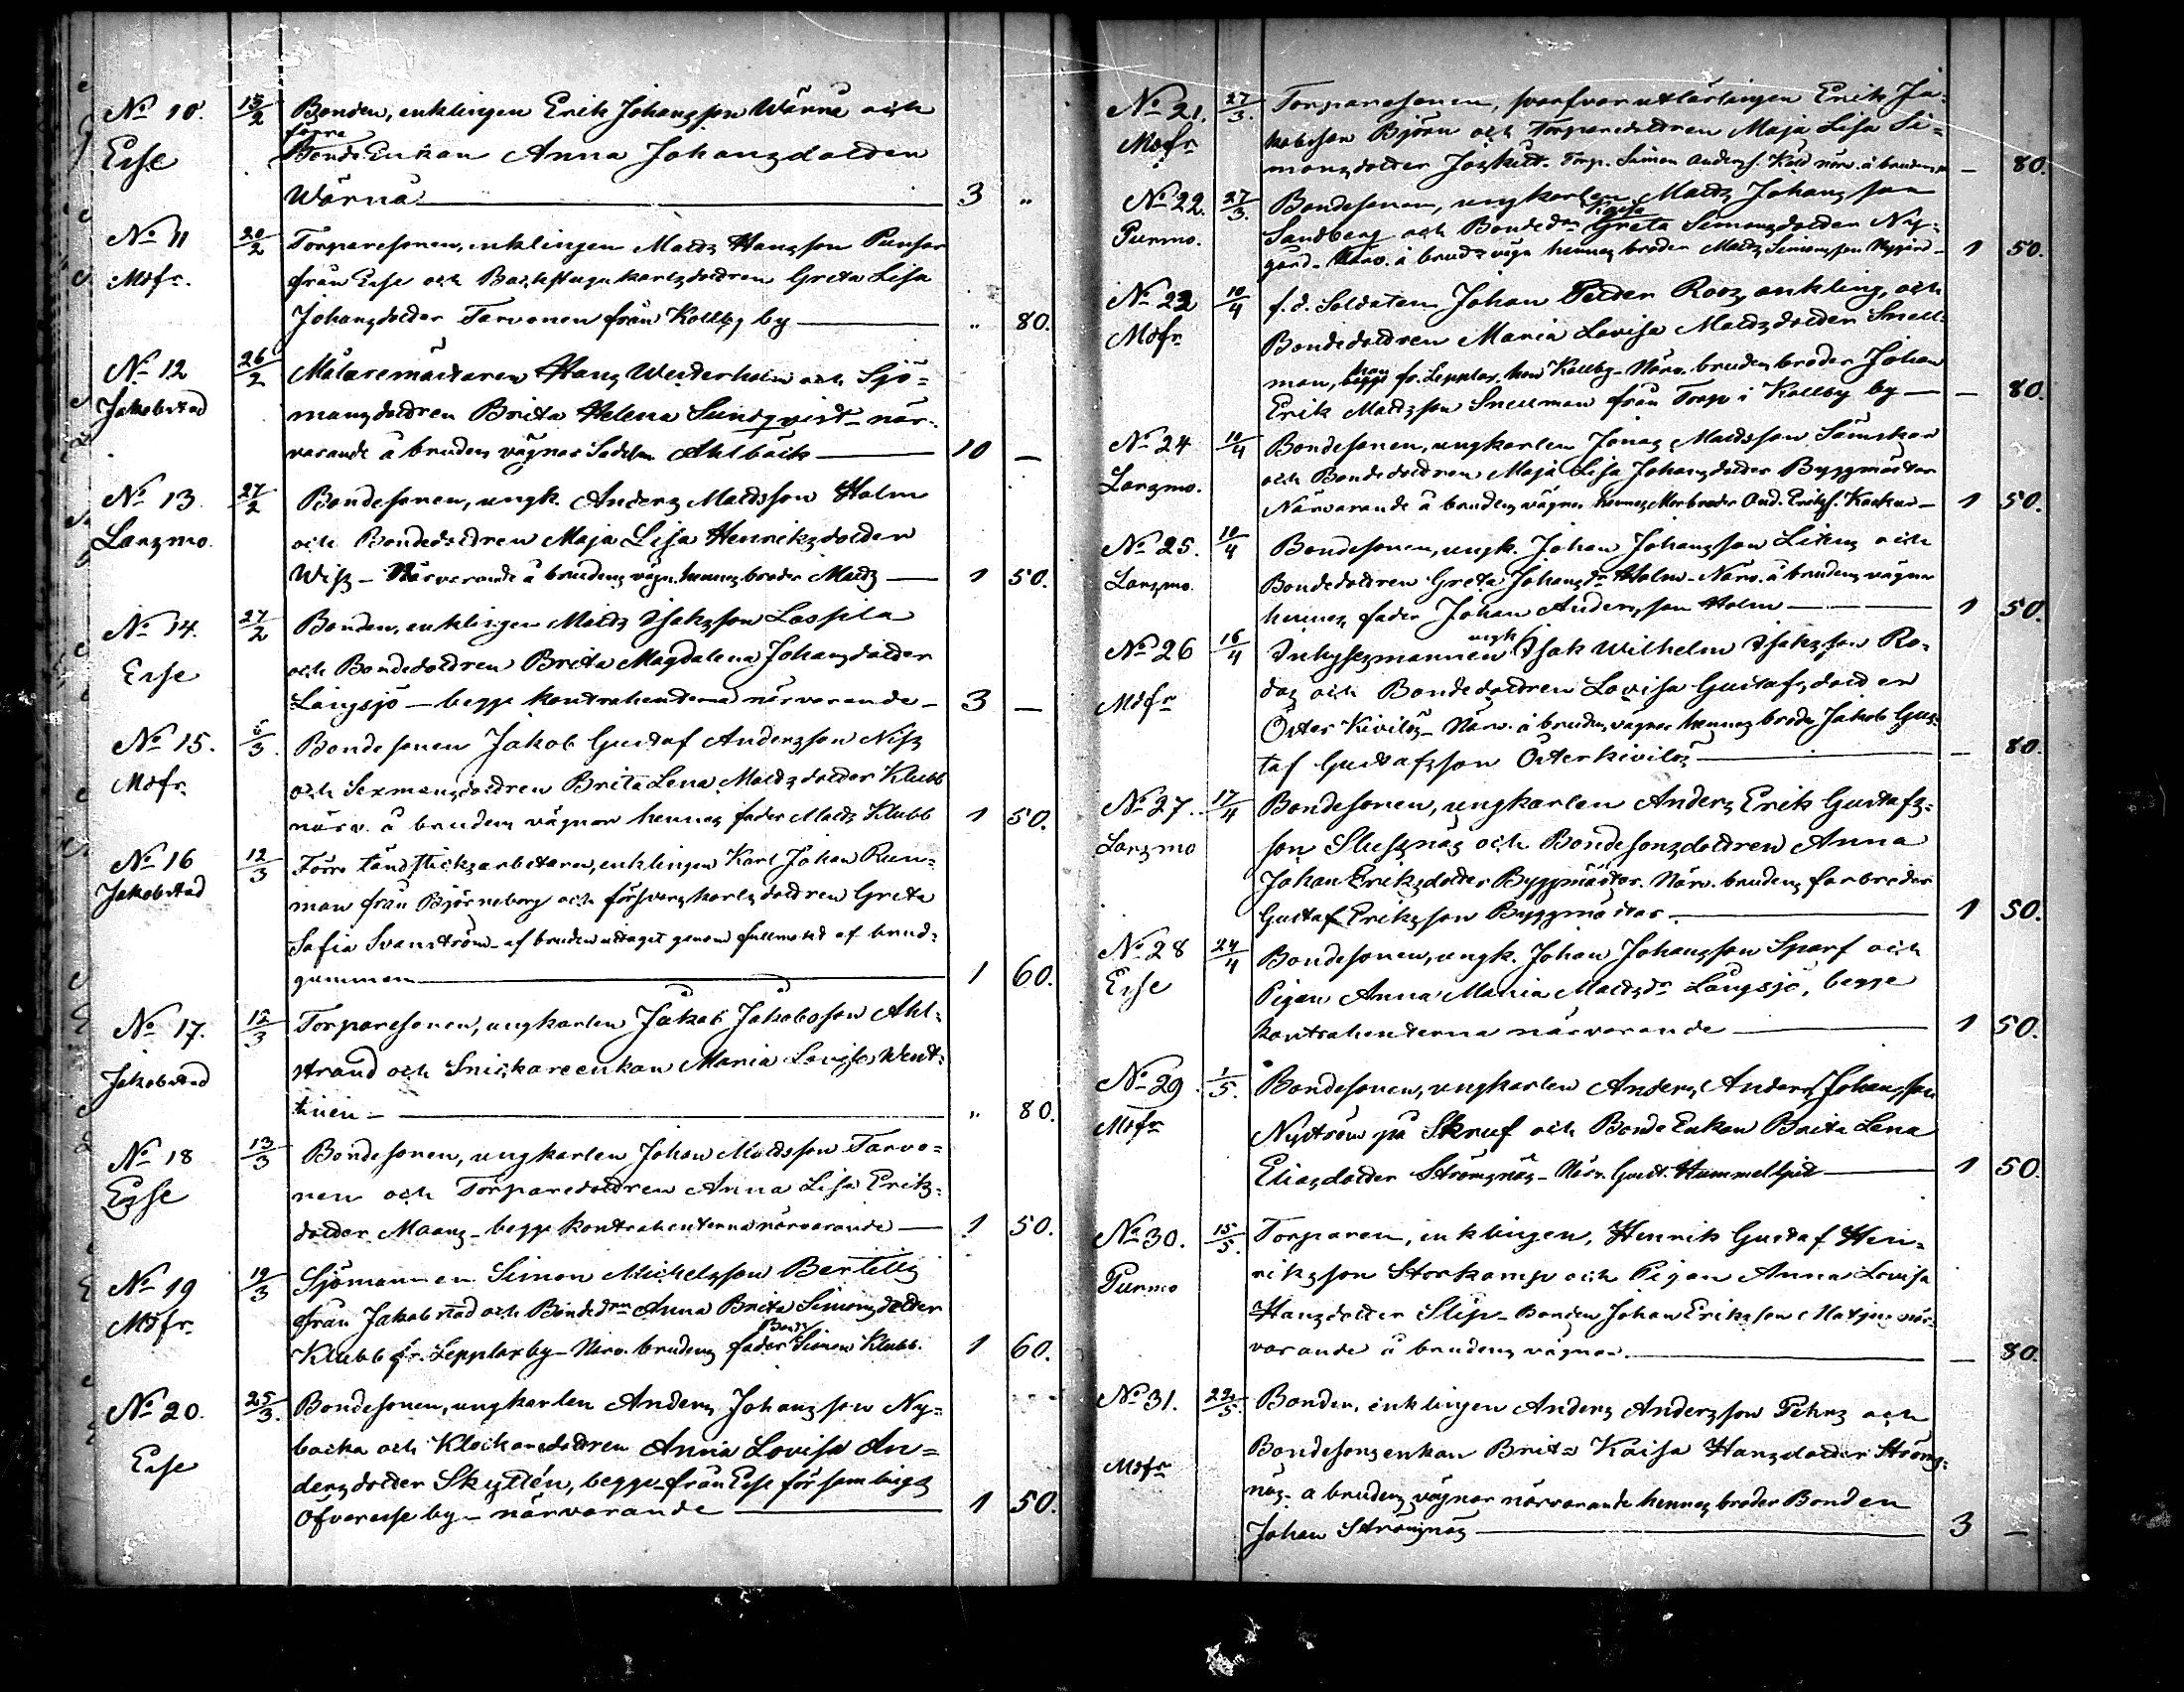 No 10. 13/2 Bonden, enklingen Erik Johansson Wärnå och
förra
Esse Bonde Enkan Anna Johansdotter
Wärnå 3 "
No 11 20/2 Torparesonen, enklingen Matts Hansson Punsar
Mofr. från Esse och Backstugukarlsdottren Greta Lisa
Johansdotter Tarvonen från Kållby by " 80.
No 12 26/2 Målaremästaren Hans Westerholm och Sjö=
Jakobstad mansdottren Brita Helena Sundqvist - när=
varande å brudens vägnar Sadelm. Ahlbäck 10 —
No 13. 27/2 Bondesonen, ungk. Anders Mattsson Holm
Larsmo och Bondedottren Maja Lisa Henriksdotter
Wiss - Närvarande å brudens vägn. hennes broder Matts 1 50.
No 14. 27/2 Bonden, enklingen Matts Isaksson Lassila
Esse och Bondedottren Brita Magdalena Johansdotter
Långsjö — begge kontrahenterna närvarande — 3 —
No 15. 6/3. Bondesonen Jakob Gustaf Andersson Niss
Mofr. och Sexmansdottren Brita Lena Mattsdotter Klubb
närv. å brudens vägnar hennes fader Matts Klubb 1 50.
No 16 12/3 Förre tändsticksarbetaren, enklingen Karl Johan Run=
Jakobstad man från Björneborg och försvarskarlsdottren Greta
Sofia Svanström - af bruden uttaget genom fullmakt af brud=
gummen 1 60.
No 17. 12/3 Torparesonen, ungkarlen Jakob Jakobsson Ahl=
Jakobstad strand och Snickareenkan Maria Lovisa Went=
tinen - " 80.
No 18 13/3 Bondesonen, ungkarlen Johan Mattsson Tarvo=
Esse nen och Torparedottren Anna Lisa Eriks=
dotter Maans - begge kontrahenterna närvarande — 1 50.
No 19 19/3 Sjömannen Simon Michelsson Bertills
Mofr. från Jakobstad och Bondedtrn Anna Brita Simonsdotter
Bond.
Klubb fr. Lepplax by - Närv. brudens fader Simon Klubb. 1 60.
No 20. 25/3. Bondesonen, ungkarlen Anders Johansson Ny=
Esse backa och Klockaredottren Anna Lovisa An=
dersdotter Skyttén, begge från Esse församlings
Öfveresse by - närvarande 1 50.
No 21. 27/3. Torparesonen, svarfvarutlärlingen Erik Ja=
Mofr kobsson Björn och Torparedottren Maja Lisa Si=
monsdotter Torp. Simon Anders. närv. å brudens — 80.
No 22. 27/3. Bondesonen, ungkarlen Matts Johansson
Purmo. Sandberg och Bondedr Greta Simonsdotter Ny=
gård - Närv. å bruds vägn hennes broder Matts Simonsson Nygård - 1 50.
No 23 10/4 f. d. Soldaten Johan Petter Roos, enkling, och
Mofr Bondedottren Maria Lovisa Mattsdotter Snell=
man, fr. Lepplax, hon Kållby - Närv. brudens broder Johan
Erik Mattsson Snellman från Torp i Kållby by — — 80.
No 24 10/4 Bondesonen, ungkarlen Jonas Mattsson Sämskar
Larsmo. och Bondedottren Maja Lisa Johansdotter Byggmästar
Närvarande å brudens vägnar hennes Morbroder And. Eriks. 1 50.
No 25. 10/4 Bondesonen, ungk. Johan Johansson Likus och
Larsmo. Bondedottren Greta Johansdr Holm - Närv. å brudens vägnar
hennes fader Johan Andersson Holm 1 50.
ungk
No 26 16/4 Inhysesmannen Isak Wilhelm Isaksson Ro=
Mofr das och Bondedottren Lovisa Gustafsdotter
Öster Kivilös - Närv. å brudens vägnar hennes broder Jakob Gus=
taf Gustafsson Österkivilös — 80.
No 27. 17/4 Bondesonen, ungkarlen Anders Erik Gustafs=
Larsmo son Slussnäs och Bondesonsdottren Anna
Johan Eriksdotter Byggmästar. Närv. brudens farbroder
Gustaf Eriksson Byggmästar. 1 50.
No 28 24/4 Bondesonen, ungk. Johan Johansson Sparf och
Esse Pigan Anna Maria Mattsdr Långsjö, begge
kontrahenterna närvarande 1 50.
No 29 1/5. Bondesonen, ungkarlen Anders Anders Johansson
Mofr Nyström på Skruf och Bonde Enkan Brita Lena
Eliasdotter Strömsnäs - Närv. Gust. Hummelhjelt 1 50.
No 30. 15/5. Torparen, enklingen, Henrik Gustaf Hen=
Purmo riksson Storkamp och Pigan Anna Lovisa
Hansdotter Slip - Bonden Johan Eriksson när=
varande å brudens vägnar. — 80.
No 31. 22/5. Bonden, enklingen Anders Andersson Pehrs och
Mofr Bondesonsenkan Brita Kaisa Hansdotter Ströms=
näs - å brudens vägnar närvarande hennes broder Bonden
Johan Strömsnäs 3 —